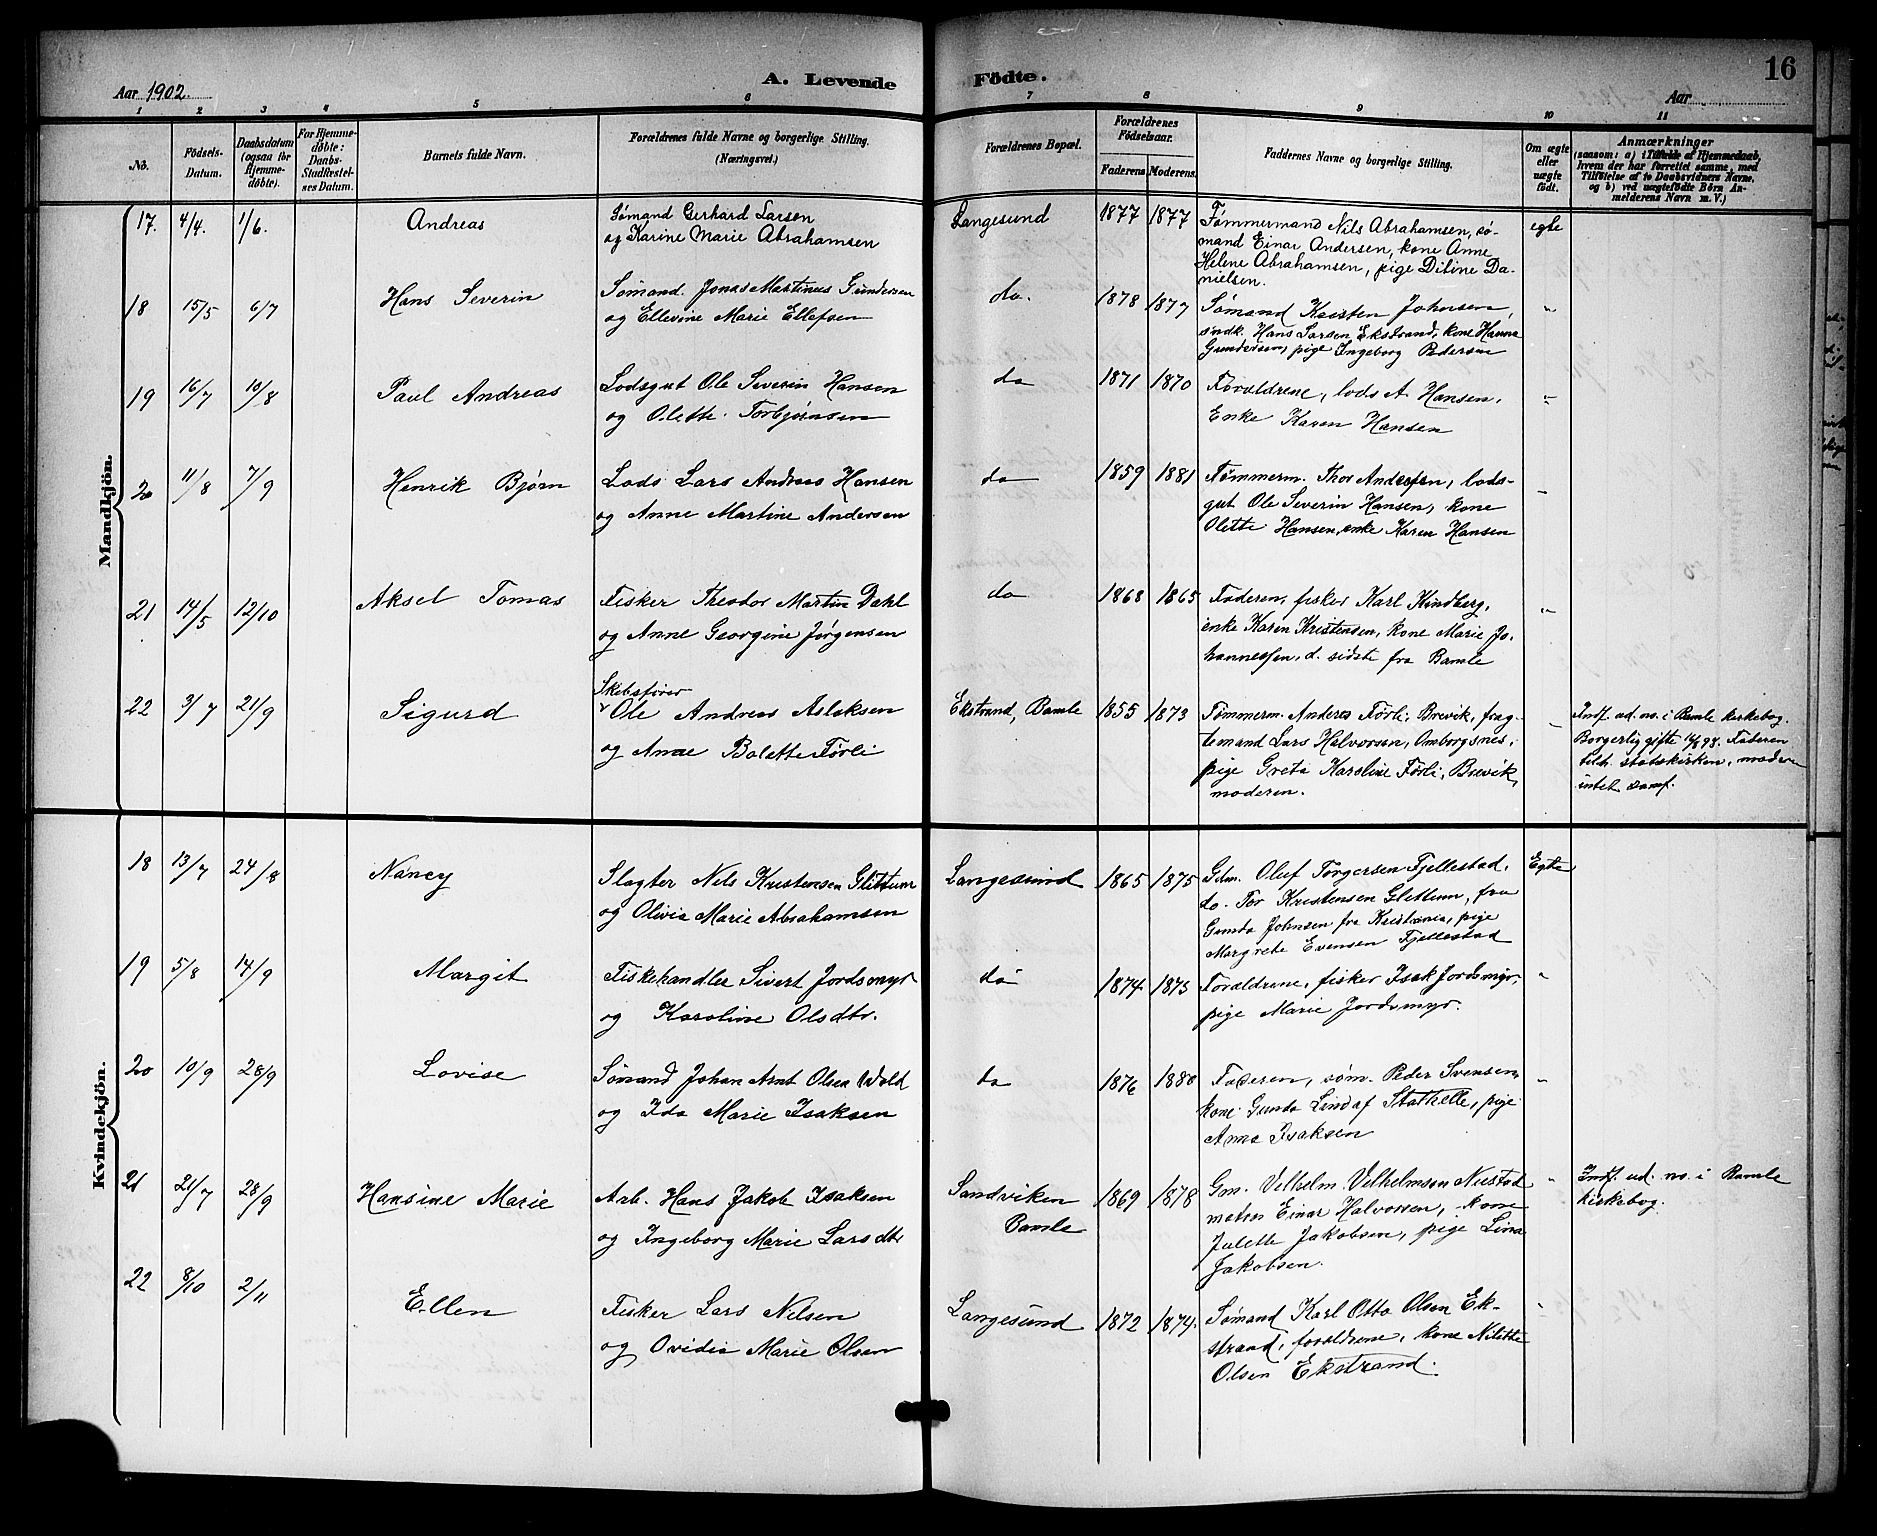 Aar 1902. A. Levende Födte. 16
Aar
1 2 3 4 5 6 7 8 9 10 11
No. Födsels-Datum. Daabsdatum (ogsaa for Hjemmedøbte). For Hjemmedøbte: Daabs-Stadfæstelses Datum. Barnets fulde Navn. Forældrenes fulde Navne og borgerlige Stilling. (Næringsvei.) Forældrenes Bopæl. Forældrenes Födselsaar. Faderens. Moderens. Faddernes Navne og borgerlige Stilling. Om ægte eller uægte født. Anmærkninger (saasom: a) i Tilfælde af Hjemmedaab, hvem der har forrettet samme, med Tilføielse af to Daabsvidners Navne, og b) ved uægtefødte Börn Anmelderens Navn m. V.)
Mandkjön.
17. 4/4. 1/6. Andreas
Sømand Gerhard Larsen
og Karine Marie Abrahamsen
Langesund 1877 1877
Tømmermand Nils Abrahamsen, sø-
mand Einar Andersen, kone Anne
Helene Abrahamsen, pige Ditine Da-
nielsen.
egte
18 15/5 6/7 Hans Severin
Sømand. Jonas Martinus Gundersen
og Ellevine Marie Ellefsen
do. 1878 1877
Sømand Karsten Johnsen,
smdk. Hans Larsen Ekstrand, kone Hanna
Gundersen, pige Ingeborg Pedersen
"
19 16/7 10/8 Paul Andreas
Lodsgut Ole Severin Hansen
og Olette Torbjørnsen
do 1871 1870
Forældrene, lods A. Hansen,
Enke Karen Hansen
"
20 11/8 7/9 Henrik Bjørn
Lods Lars Andreas Hansen
og Anne Martine Andersen
do 1859 1881
Tømmerm. Thor Andersen, lods-
gut Ole Severin Hansen, kone
Olette Hansen, enke Karen Hansen
"
21 14/5 12/10 Aksel Tomas
Fisker Theodor Martin Dahl
og Anne Georgine Jørgensen
do 1868 1865
Faderen, fisker Karl Kindberg,
enke Karen Kristensen, kone Marie Jo-
hannessen, d. sidste fra Bamle
"
22 3/7 21/9 Sigurd
Skibsfører
Ole Andreas Aslaksen
og Anne Bolette Førli
Ekstrand, Bamle 1855 1873
Tømmerm. Anders Førli, Brevik, frag-
temand Lars Halvorsen, Omborgsnes,
pige Greta Karoline Førli, Brevik,
moderen.
"
Indf. ud. no. i Bamle kirkebog.
Borgerlig gifte Faderen
tilh. statskirken, moderen
intet samf.
Kvindekjön.
18 13/7 24/8 Nancy
Slagter Nils Kristensen Glittum
og Olivia Marie Abrahamsen
Langesund 1865 1875
Gdm. Oluf Torgersen Fjellestad,
do. Tor Kristensen Glettum, fru
Gunda Johnsen fra Kristiania, pige
Margrete Evensen Fjellestad
Egte
19 5/8 14/9 Margit
Fiskehandler Sivert Jordsmyr
og Karoline Olsdtr.
do 1874 1875
Forældrene, fisker Isak Jordsmyr,
pige Marie Jordsmyr.
"
20 10/9 28/9 Lovise
Sømand Johan Arnt Olsen Wold
og Ida Marie Isaksen
do 1876 1880
Faderen, søm. Peder Svensen,
kone Gunda Lind af Stathelle, pige
Anna Isaksen
"
21 21/7 28/9 Hansine Marie
Arb. Hans Jakob Isaksen
og Ingeborg Marie Larsdtr
Sandviken
Bamle
1869 1878
Gm. Vilhelm Vilhelmsen Nustad
matros Einar Halvorsen, kone
Julette Jakobsen, pige Lina
Jakobsen.
"
Indf. ud. no. i Bamle
kirkebog.
22 8/10 2/11 Ellen
Fisker Lars Nilsen
og Ovidia Marie Olsen
Langesund 1872 1874.
Sømand Karl Otto Olsen Ek-
strand, forældrene, kone Nilitte
Olsen Ekstrand.
"